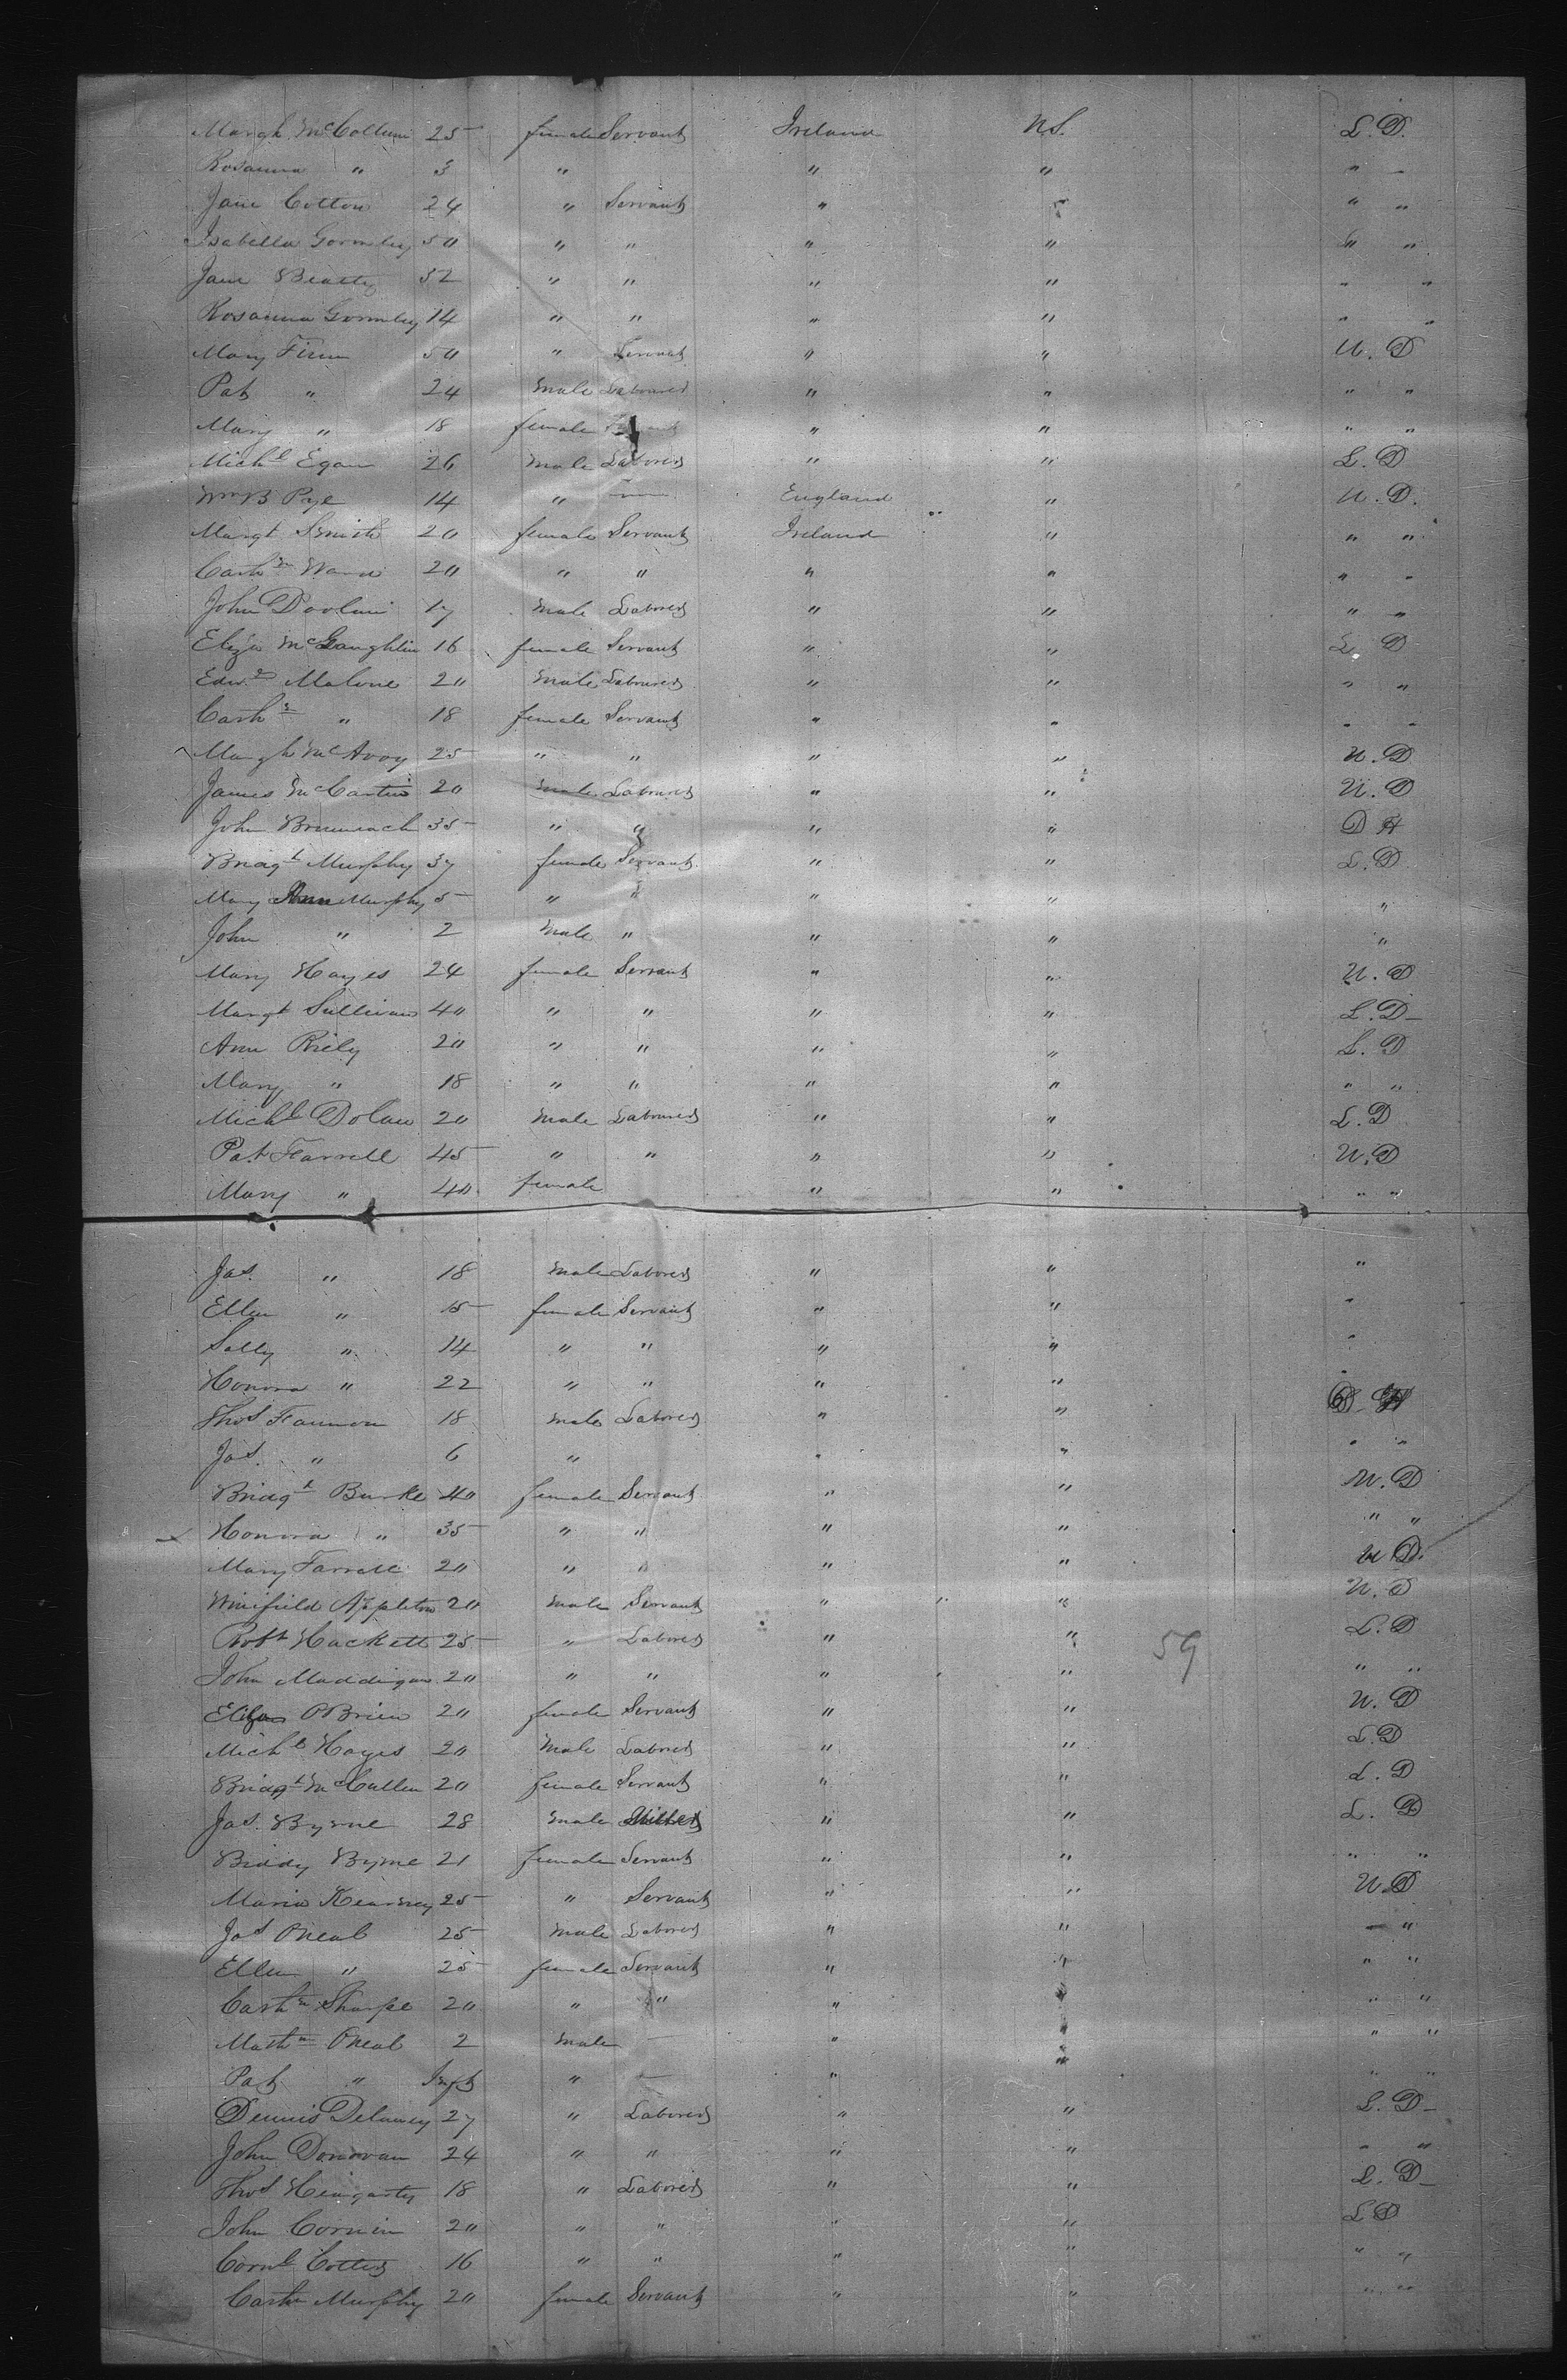 Margt McCollum 25 female Servant Ireland U.S. L.D.
Rosanna " 3 " " " " "
Jane Cotton 24 " Servant " " " "
Isabella Gormley 50 " " " " " "
Jane Beatty 32 " " " " " "
Rosanna Gormley 14 " " " " " "
Mary Finn 50 " Servant " " U.D
Pat " 24 male Labourer " " " "
Mary " 18 female " " " "
Michl Egan 26 male Laborer " " L.D
Wm B Pye 14 " — England " U.D.
Margt Smith 20 female Servant Ireland " " "
Cathn Ward 20 " " " " " "
John Doolan 17 male Laborer " " " "
Eliza McLaughlin 16 female Servant " " L D
Edwd Malone 20 male Labourer " " " "
Cathn " 18 female Servant " " " "
Margt McAvoy 25 " " " " U.D
James McCartin 20 male Labourer " " U.D
John Brunnach 35 " " " " D H
Bridgt Murphy 37 female Servant " " L.D
Mary Ann Murphy 5 " " " " "
John " 2 male " " " "
Mary Hayes 24 female Servant " " U.D
Margt Sullivan 40 " " " " L.D
Ann Riely 20 " " " " L.D
Mary " 18 " " " " " "
Michl Dolan 20 male Labourer " " L.D
Pat Farrell 45 " " " " U.D
Mary " 40 female " " " "
Jas. " 18 male Laborer " " "
Ellen " 15 female Servant " " "
Sally " 14 " " " " "
Honora " 22 " " " " "
Thos Fannon 18 male Laborer " "
Jas. " 6 " " " " "
Bridgt Burke 40 female Servant " " U.D
Honora " 35 " " " " " "
Mary Farrell 20 " " " " U D.
Winifield Appleton 20 male Servant " " U.D
Robt Hackett 25 " Laborer " " 59 L.D
John Maddigan 20 " " " " " "
Eliza OBrien 20 female Servant " " U.D
Michl Hayes 20 male Laborer " " L.D
Bridgt McCullen 20 female Servant " " L.D
Jas. Byrne 28 male Miller " " L.D
Biddy Byrne 21 female Servant " " " "
Maria Kearney 25 " Servant " " U.D
Jas ONeal 25 male Laborer " " " "
Ellen " 25 female Servant " " " "
Cathn Sharpe 20 " " " " " "
Mathw ONeal 2 male — " " " "
Pat " Inft " — " " " "
Dennis Delaney 27 " Laborer " " L.D
John Donovan 24 " " " " " "
Thos Heingarty 18 " Laborer " " L.D
John Cornin 20 " " " " L D
Cornl Cotter 16 " " " " " "
Cathn Murphy 20 female Servant " " " "